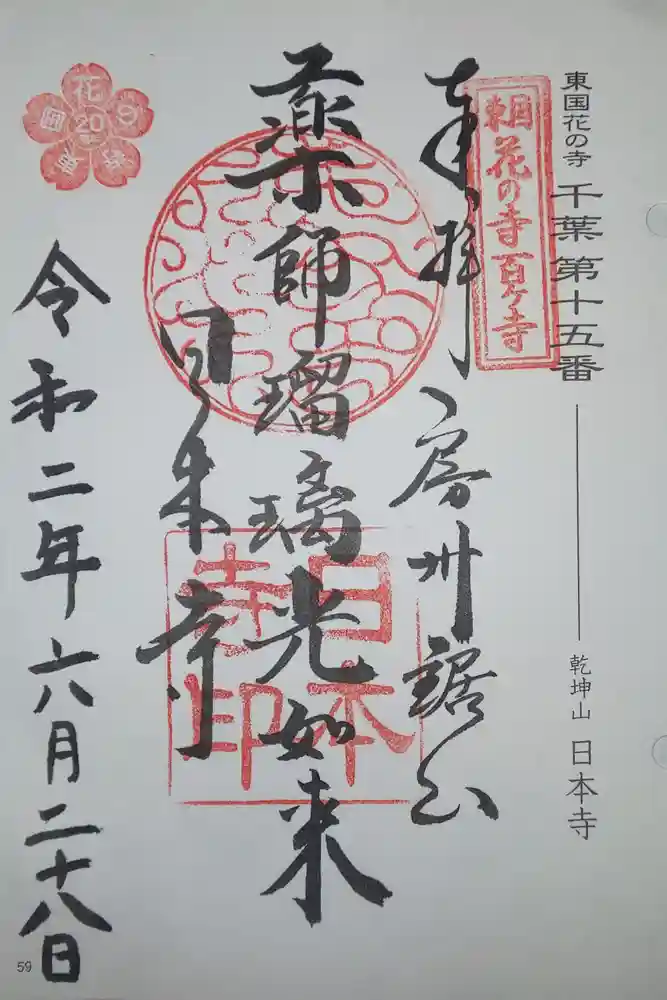 東国花の寺 千葉 第十五番
乾坤山 日本寺
東国花の寺百ヶ寺
奉拝 房州鋸山
薬師瑠璃光如来
日本寺
日本
寺印
令和二年六月二十八日
花の寺東国
20
59